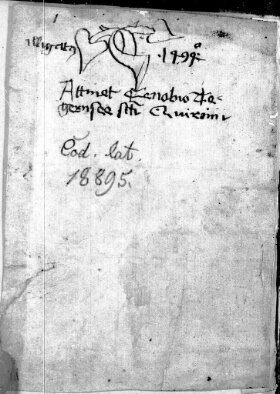 1494
Attinet Cenobio Te-
gernsee sti Quirini
Cod. lat.
18895.